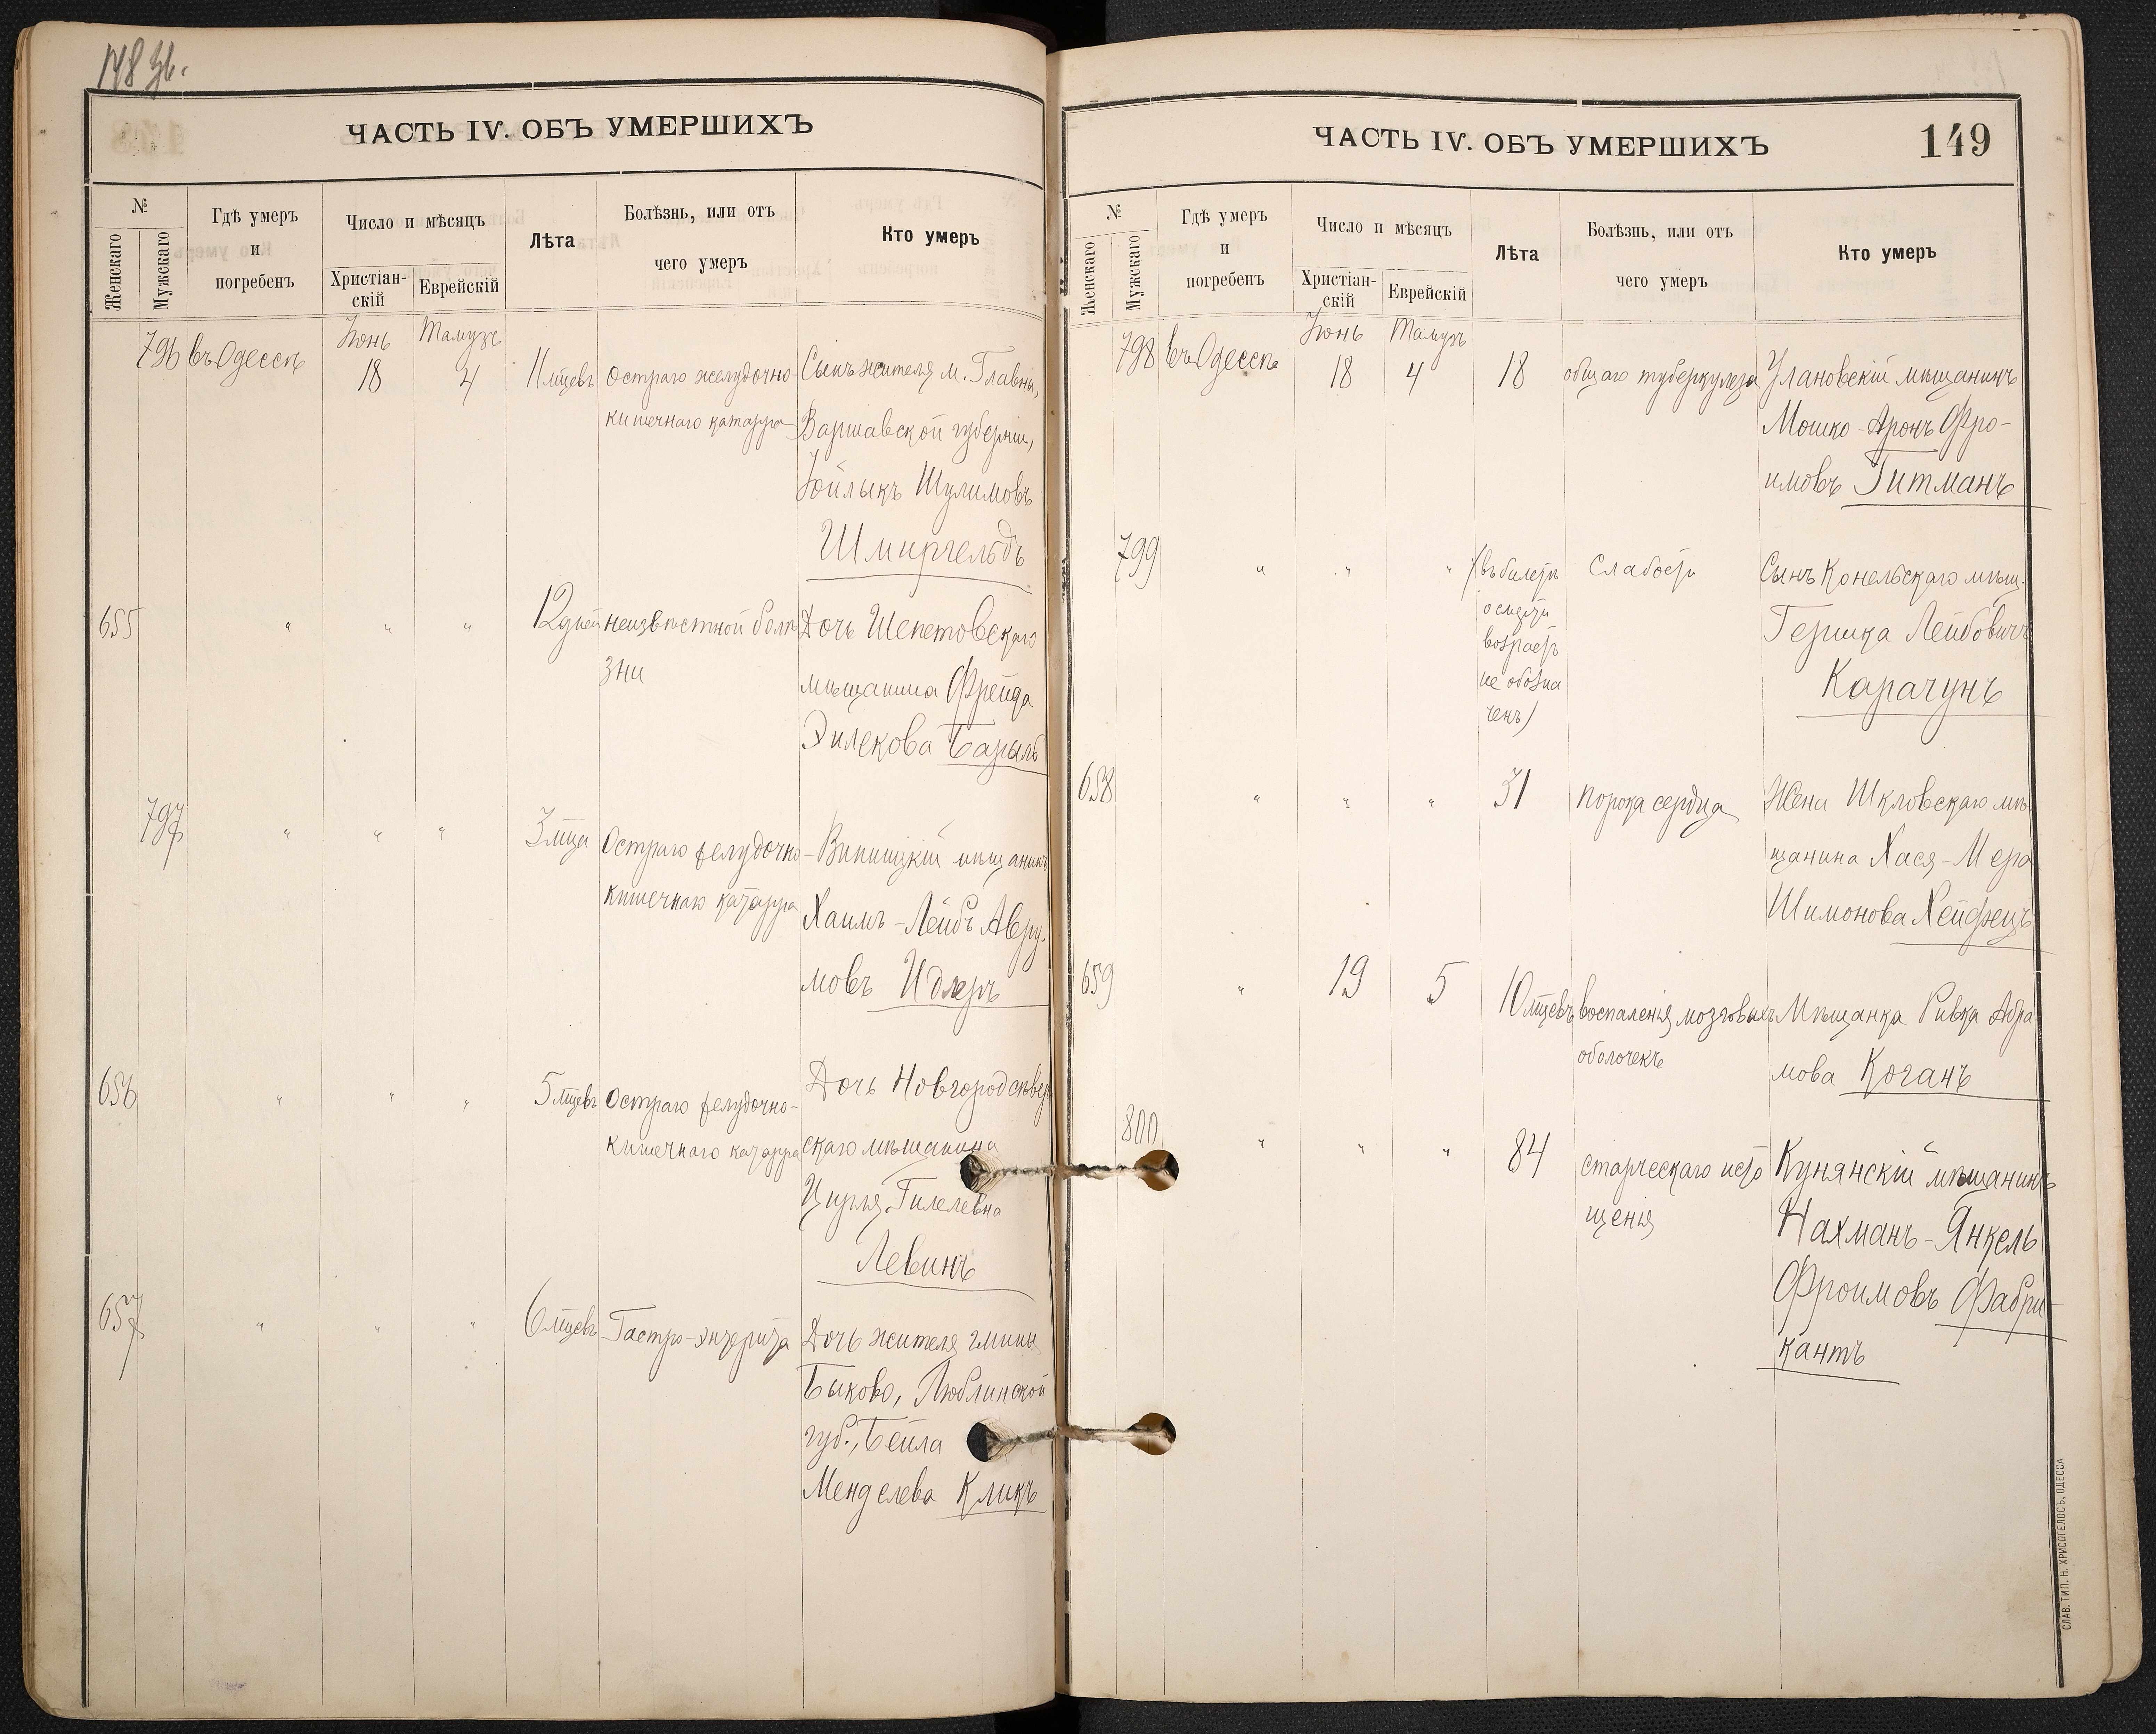 148 зв.
ЧАСТЬ IV. ОБЪ УМЕРШИХЪ
№
Женскаго
Мужскаго
Гдѣ умеръ
и
погребенъ
Число и мѣсяцъ
Христіан-
скій
Еврейскій
Лѣта
Болѣзнь, или отъ
чего умеръ
Кто умеръ
Іюнь Тамузъ
796 въ Одессѣ 18 4 11 мцевъ Остраго желудочно- Сынъ жителя м. Главна,
кишечнаго катарра Варшавской губерніи,
Іойлыкъ Шулимовъ
Шмиргельдъ
655 " " " 12 дней неизвѣстной болѣ Дочь Шепетовскаго
зни мѣщанина Фрейда
Эилекова Барыль
797 " " " 3 мца Остраго желудочно- Винницкій мѣщанинъ
кишечнаго катарра Хаимъ-Лейбъ Авру-
мовъ Идлеръ
656 " " " 5 мцевъ Остраго желудочно- Дочь Новгородсѣвер
кишечнаго катарра скаго мѣщанина
Цирля Гилелевна
Левинъ
657 " " " 6 мцевъ Гастро-энтерита Дочь жителя гмины
Быково, Люблинской
губ., Бейла
Менделева Кликъ
ЧАСТЬ IV. ОБЪ УМЕРШИХЪ
149
№
Женскаго
Мужскаго
Гдѣ умеръ
и
погребенъ
Число и мѣсяцъ
Христіан-
скій
Еврейскій
Лѣта
Болѣзнь, или отъ
чего умеръ
Кто умеръ
Іюнь Тамузъ
798 въ Одессѣ 18 4 18 общаго туберкулеза Улановскій мѣщанинъ
Мошко-Аронъ Фро-
имовъ Гитманъ
799 " " " (въ билетѣ слабости Сынъ Конельскаго мѣщ.
о смерти Гершка Лейбовичъ
возрастъ
не обозна Карачунъ
ченъ)
658 " " " 31 порока сердца Жена Шкловскаго мѣ
щанина Хася-Мера
Шимонова Хейфецъ
659 " 19 5 10 мцевъ воспаленія мозговыхъ Мѣщанка Ривка Абра
оболочекъ мова Коганъ
800 " " " 84 старческаго исто Кунянскій мѣщанинъ
щенія Нахманъ-Янкель
Фроимовъ Фабри-
кантъ
СЛАВ. ТИП. Н. ХРИСОГЕЛОСЪ, ОДЕССА